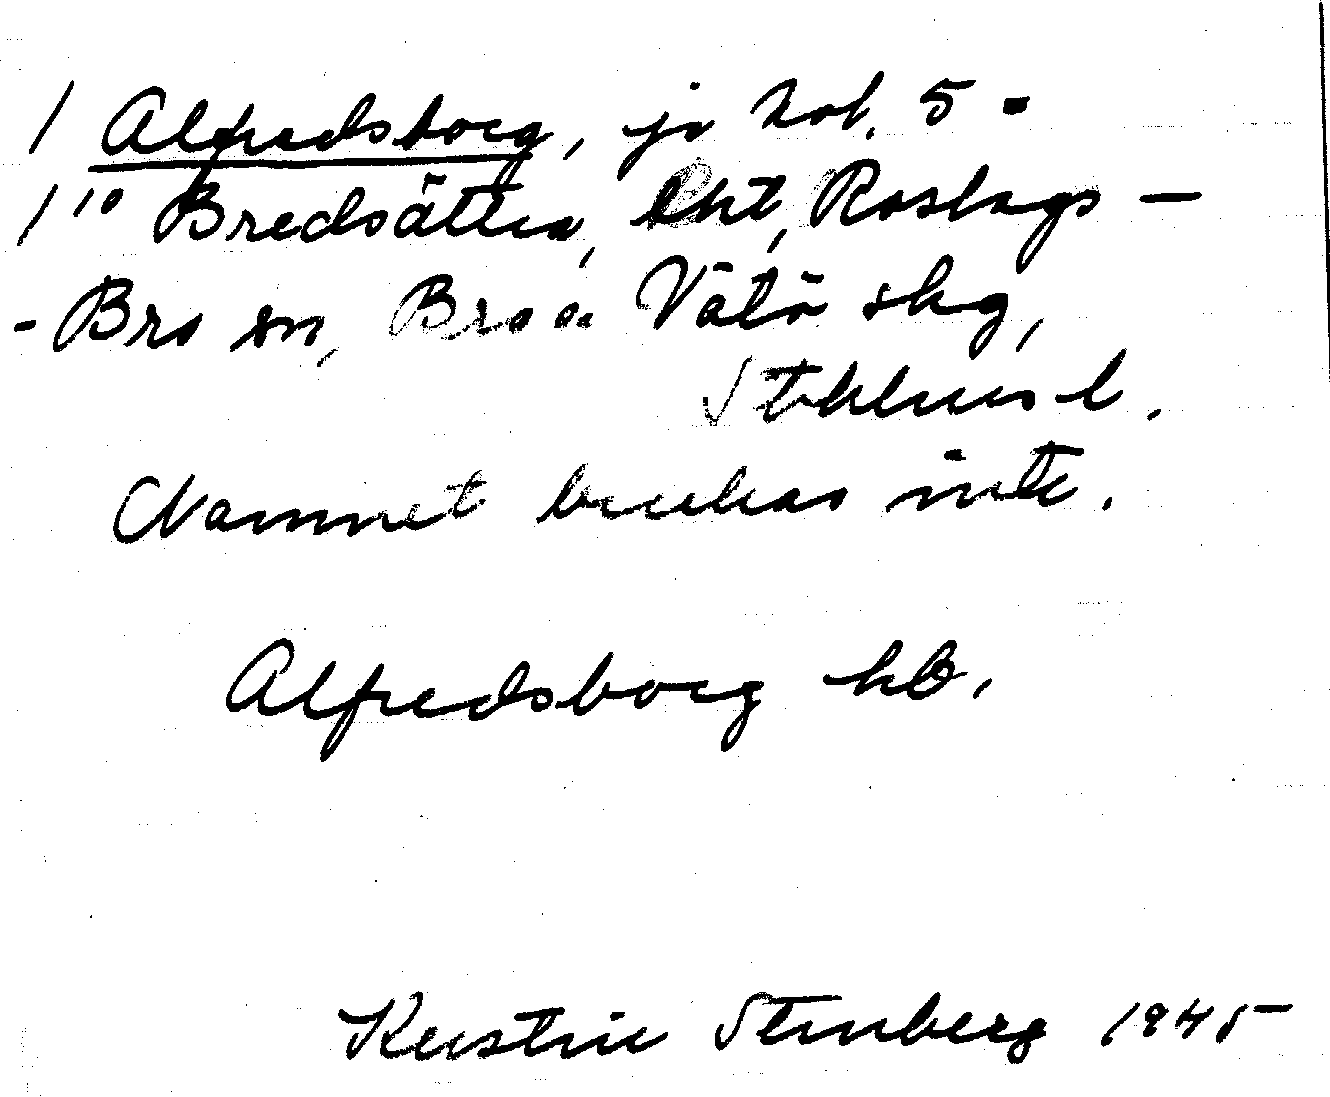 / Alfredsborg, jr kol. 5 -
/ 10 Bredsättra, Lht, Roslags -
- Bro sn, Bro o. Vätö skg,
Stkhlms l.
Namnet brukas inte.
Alfredsborg hb.
Kerstin Stenberg 1945